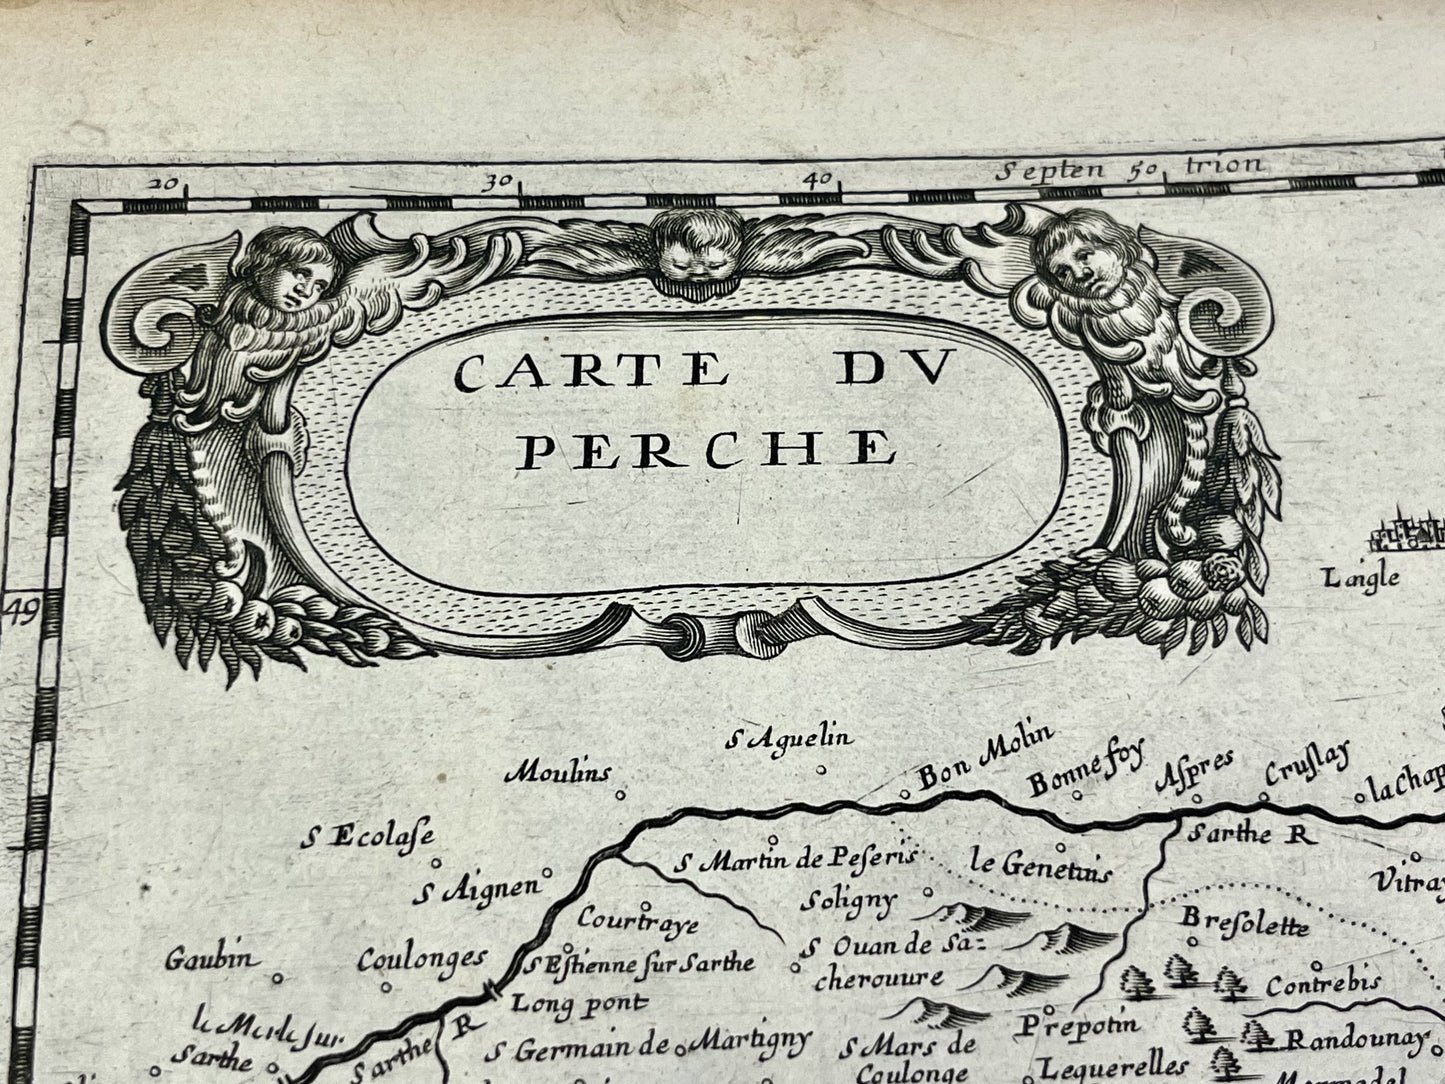 20 30 40 Septen 50 trion
CARTE DV
PERCHE
49
Laigle
S Aguelin
Moulins
Bon Molin
Bonnefoy
Aſpres
Cruſlay
la Chap
S Ecolaſe
Sarthe R
S Martin de Peſeris
le Genetuis
Vitray
S Aignen
Soligny
Courtraye
Breſolette
S Ouan de Sa=
cherouure
Gaubin
Coulonges
S Eſtienne ſur Sarthe
Contrebis
Long pont
le Mesle sur
Sarthe
Sarthe R
S Germain de Martigny
Prepotin
Randounay
S Mars de
Coulonge
Lequerelles